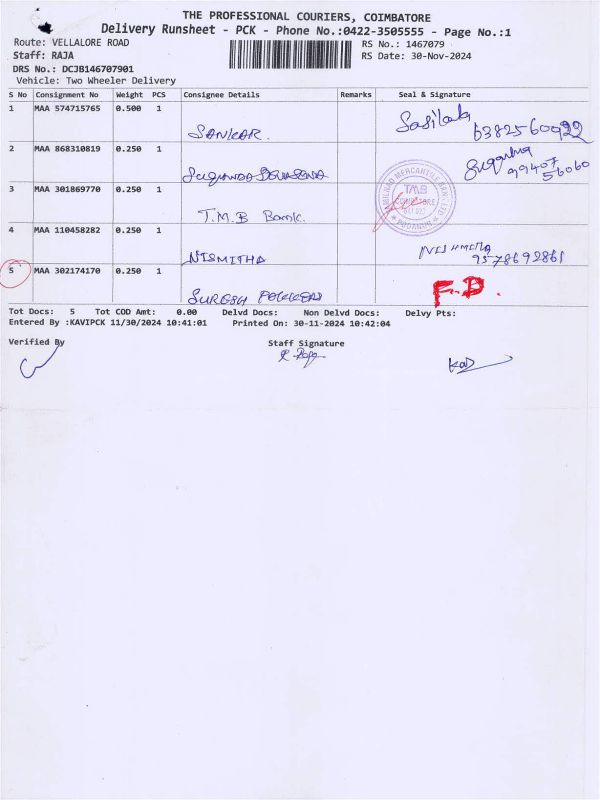 THE PROFESSIONAL COURIERS, COIMBATORE
Delivery Runsheet - PCK - Phone No.:0422-3505555 - Page No.:1
Route: VELLALORE ROAD RS No.: 1467079
Staff: RAJA RS Date: 30-Nov-2024
DRS No.: DCJB146707901
Vehicle: Two Wheeler Delivery
S No Consignment No Weight PCS Consignee Details Remarks Seal & Signature
1 MAA 574715765 0.500 1
SANKAR. 6382560922
2 MAA 868310819 0.250 1
99407
56060
3 MAA 301869770 0.250 1
T.M.B Bank.
TAMILNAD MERCANTILE BANK LTD
TMB
COIMBATORE
PODANUR
4 MAA 110458282 0.250 1
NISMITHA 9578692861
5 MAA 302174170 0.250 1
SURESH F.D.
Tot Docs: 5 Tot COD Amt: 0.00 Delvd Docs: Non Delvd Docs: Delvy Pts:
Entered By :KAVIPCK 11/30/2024 10:41:01 Printed On: 30-11-2024 10:42:04
Verified By Staff Signature